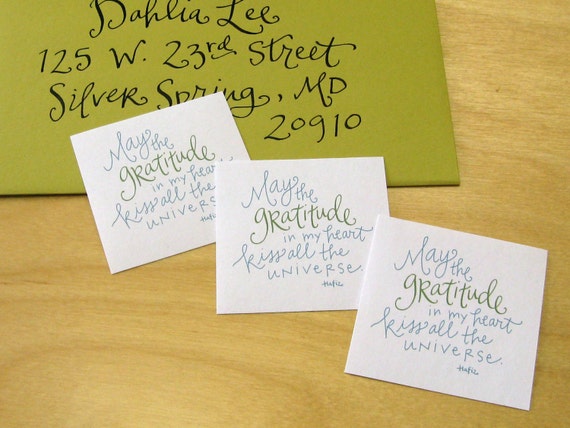 Dahlia Lee
125 W. 23rd Street
Silver Spring, MD
20910
May
the
gratitude
in my heart
kiss all the
UNIVERSE.
Hafiz
May
the
gratitude
in my heart
kiss all the
UNIVERSE.
Hafiz
May
the
gratitude
in my heart
kiss all the
UNIVERSE.
Hafiz